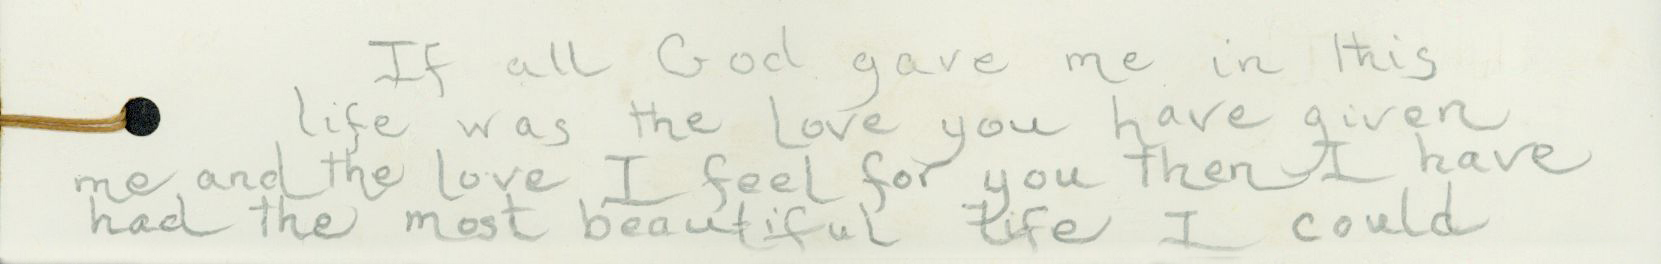 If all God gave me in this
life was the love you have given
me and the love I feel for you then I have
had the most beautiful life I could